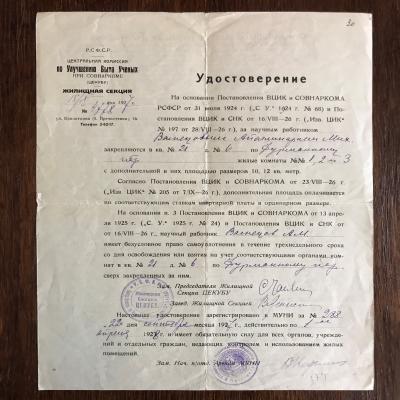 Р.С.Ф.С.Р.
ЦЕНТРАЛЬНАЯ КОМИССИЯ
по Улучшению Быта Ученых
ПРИ СОВНАРКОМЕ
(ЦЕКУБУ)
ЖИЛИЩНАЯ СЕКЦИЯ
Удостоверение
На основании Постановления ВЦИК и СОВНАРКОМА
РСФСР от 31 июля 1924 г. („С. У." 1924 г. № 68) и По-
становления ВЦИК и СНК от 16/VIII—26 г. („Изв. ЦИК"
№ 197 от 28/VIII—26 г.), за научным работником
Васнецовым Аполлинарием Мих.
закрепляются в кв. № 21 д. № 6 по Фурманному
пер. жилые комнаты №№ 1, 2 и 3
с дополнительной к ним площадью размером 10, 12 кв. метр.
Согласно Постановления ВЦИК и СОВНАРКОМА от 23/VIII—26 г.
(„Изв. ЦИК" № 205 от 7/IX—26 г.), дополнительная площадь оплачивается
по соответствующим ставкам квартирной платы в одинарном размере.
На основании п. 3 Постановления ВЦИК и СОВНАРКОМА от 13 апре
1925 г. („С. У." 1925 г. № 24) и Постановления ВЦИК и СНК от
от 16/VIII—26 г., научный работник Васнецов А.М.
имеет безусловное право самоуплотнения в течение трехнедельного срока
со дня освобождения или взятия на учет соответствующими органами, ком-
нат в кв. № 21 д. № 6 по Фурманному пер.
сверх закрепленных за ним.
Зам. Председателя Жилищной
Секции ЦЕКУБУ
Завед. Жилищной Секцией
Настоящее удостоверение зарегистрировано в МУНИ за № 288
„22" сентября месяца 192 г., действительно по 1-ое
апреля 192 г. и имеет обязательную силу для всех органов, учрежде-
ний и отдельных граждан, ведающих контролем и использованием жилых
помещений.
Зам. Нач. п/отд. Аренды МУНИ